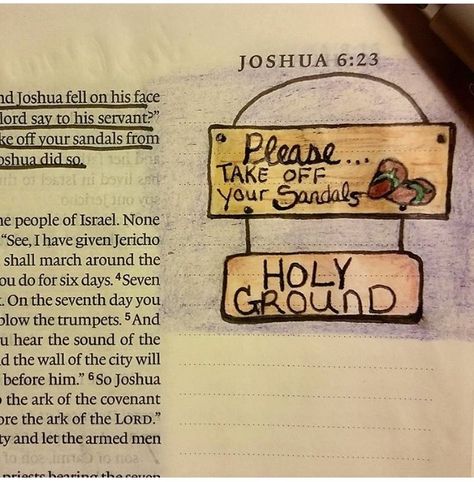 JOSHUA 6:23
nd Joshua fell on his face
lord say to his servant?"
ke off your sandals from
oshua did so.
Please...
TAKE OFF
your Sandals
HOLY
GROUND
he people of Israel. None
"See, I have given Jericho
shall march around the
ou do for six days. ⁴Seven
. On the seventh day you
blow the trumpets. ⁵And
u hear the sound of the
d the wall of the city will
before him." ⁶So Joshua
the ark of the covenant
ore the ark of the LORD."
ty and let the armed men
priests bearing the seven